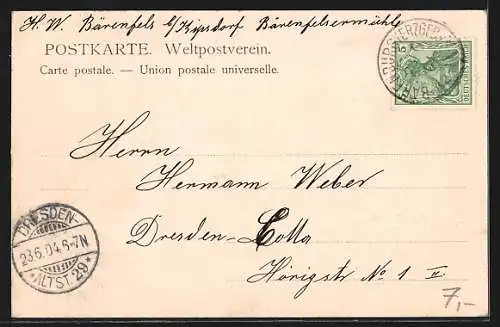 H. W. Bärenfels b/Kipsdorf Bärenfelsermühle
POSTKARTE. Weltpostverein.
Carte postale. — Union postale universelle.
(ERZGEB.)
DEUTSCHES
Herrn
Hermann Weber
Dresden-Cotta
Hörigstr No 1 II
DRESDEN-
23.6.04.6-7N
*ALTST.29*
7,-